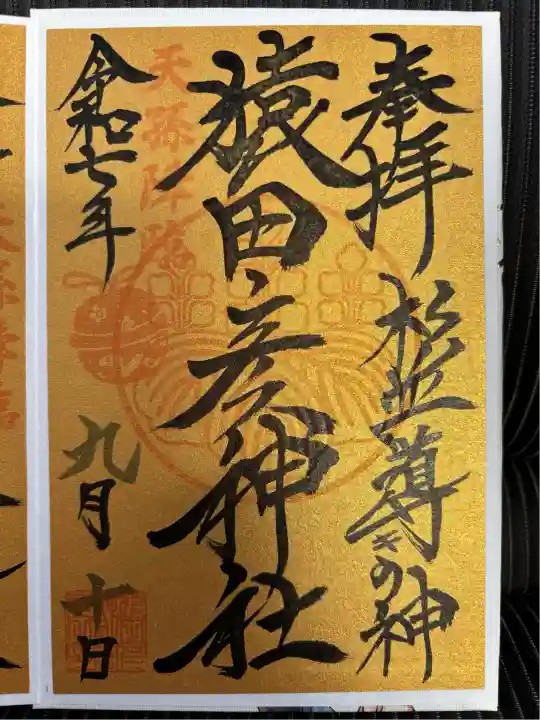 奉拝
猿田彦神社
天孫降臨
令和七年
九月十日